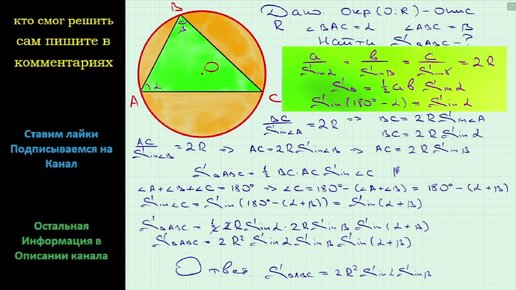 кто смог решить
сам пишите в
комментариях
Ставим лайки
Подписываемся на
Канал
Остальная
Информация в
Описании канала
B
β
O
α
A
C
Дано: Окр(O;R)-опис
R ∠BAC=α ∠ABC=β
Найти S△ABC-?
a/Sinα = b/Sinβ = c/Sinγ = 2R
S△ = ½ab Sinα
Sin(180°-α) = Sinα
BC/Sin∠A = 2R ⇒ BC=2RSin∠A
BC=2RSinα
AC/Sin∠B = 2R ⇒ AC=2RSin∠B ⇒ AC=2RSinβ
S△ABC = ½ BC·AC Sin∠C
∠A+∠B+∠C=180° ⇒ ∠C=180°-(∠A+∠B) = 180°-(α+β)
Sin∠C = Sin(180°-(α+β)) = Sin(α+β)
S△ABC = ½ 2RSinα·2RSinβ Sin(α+β)
S△ABC = 2R²SinαSinβSin(α+β)
Ответ S△ABC=2R²SinαSinβ